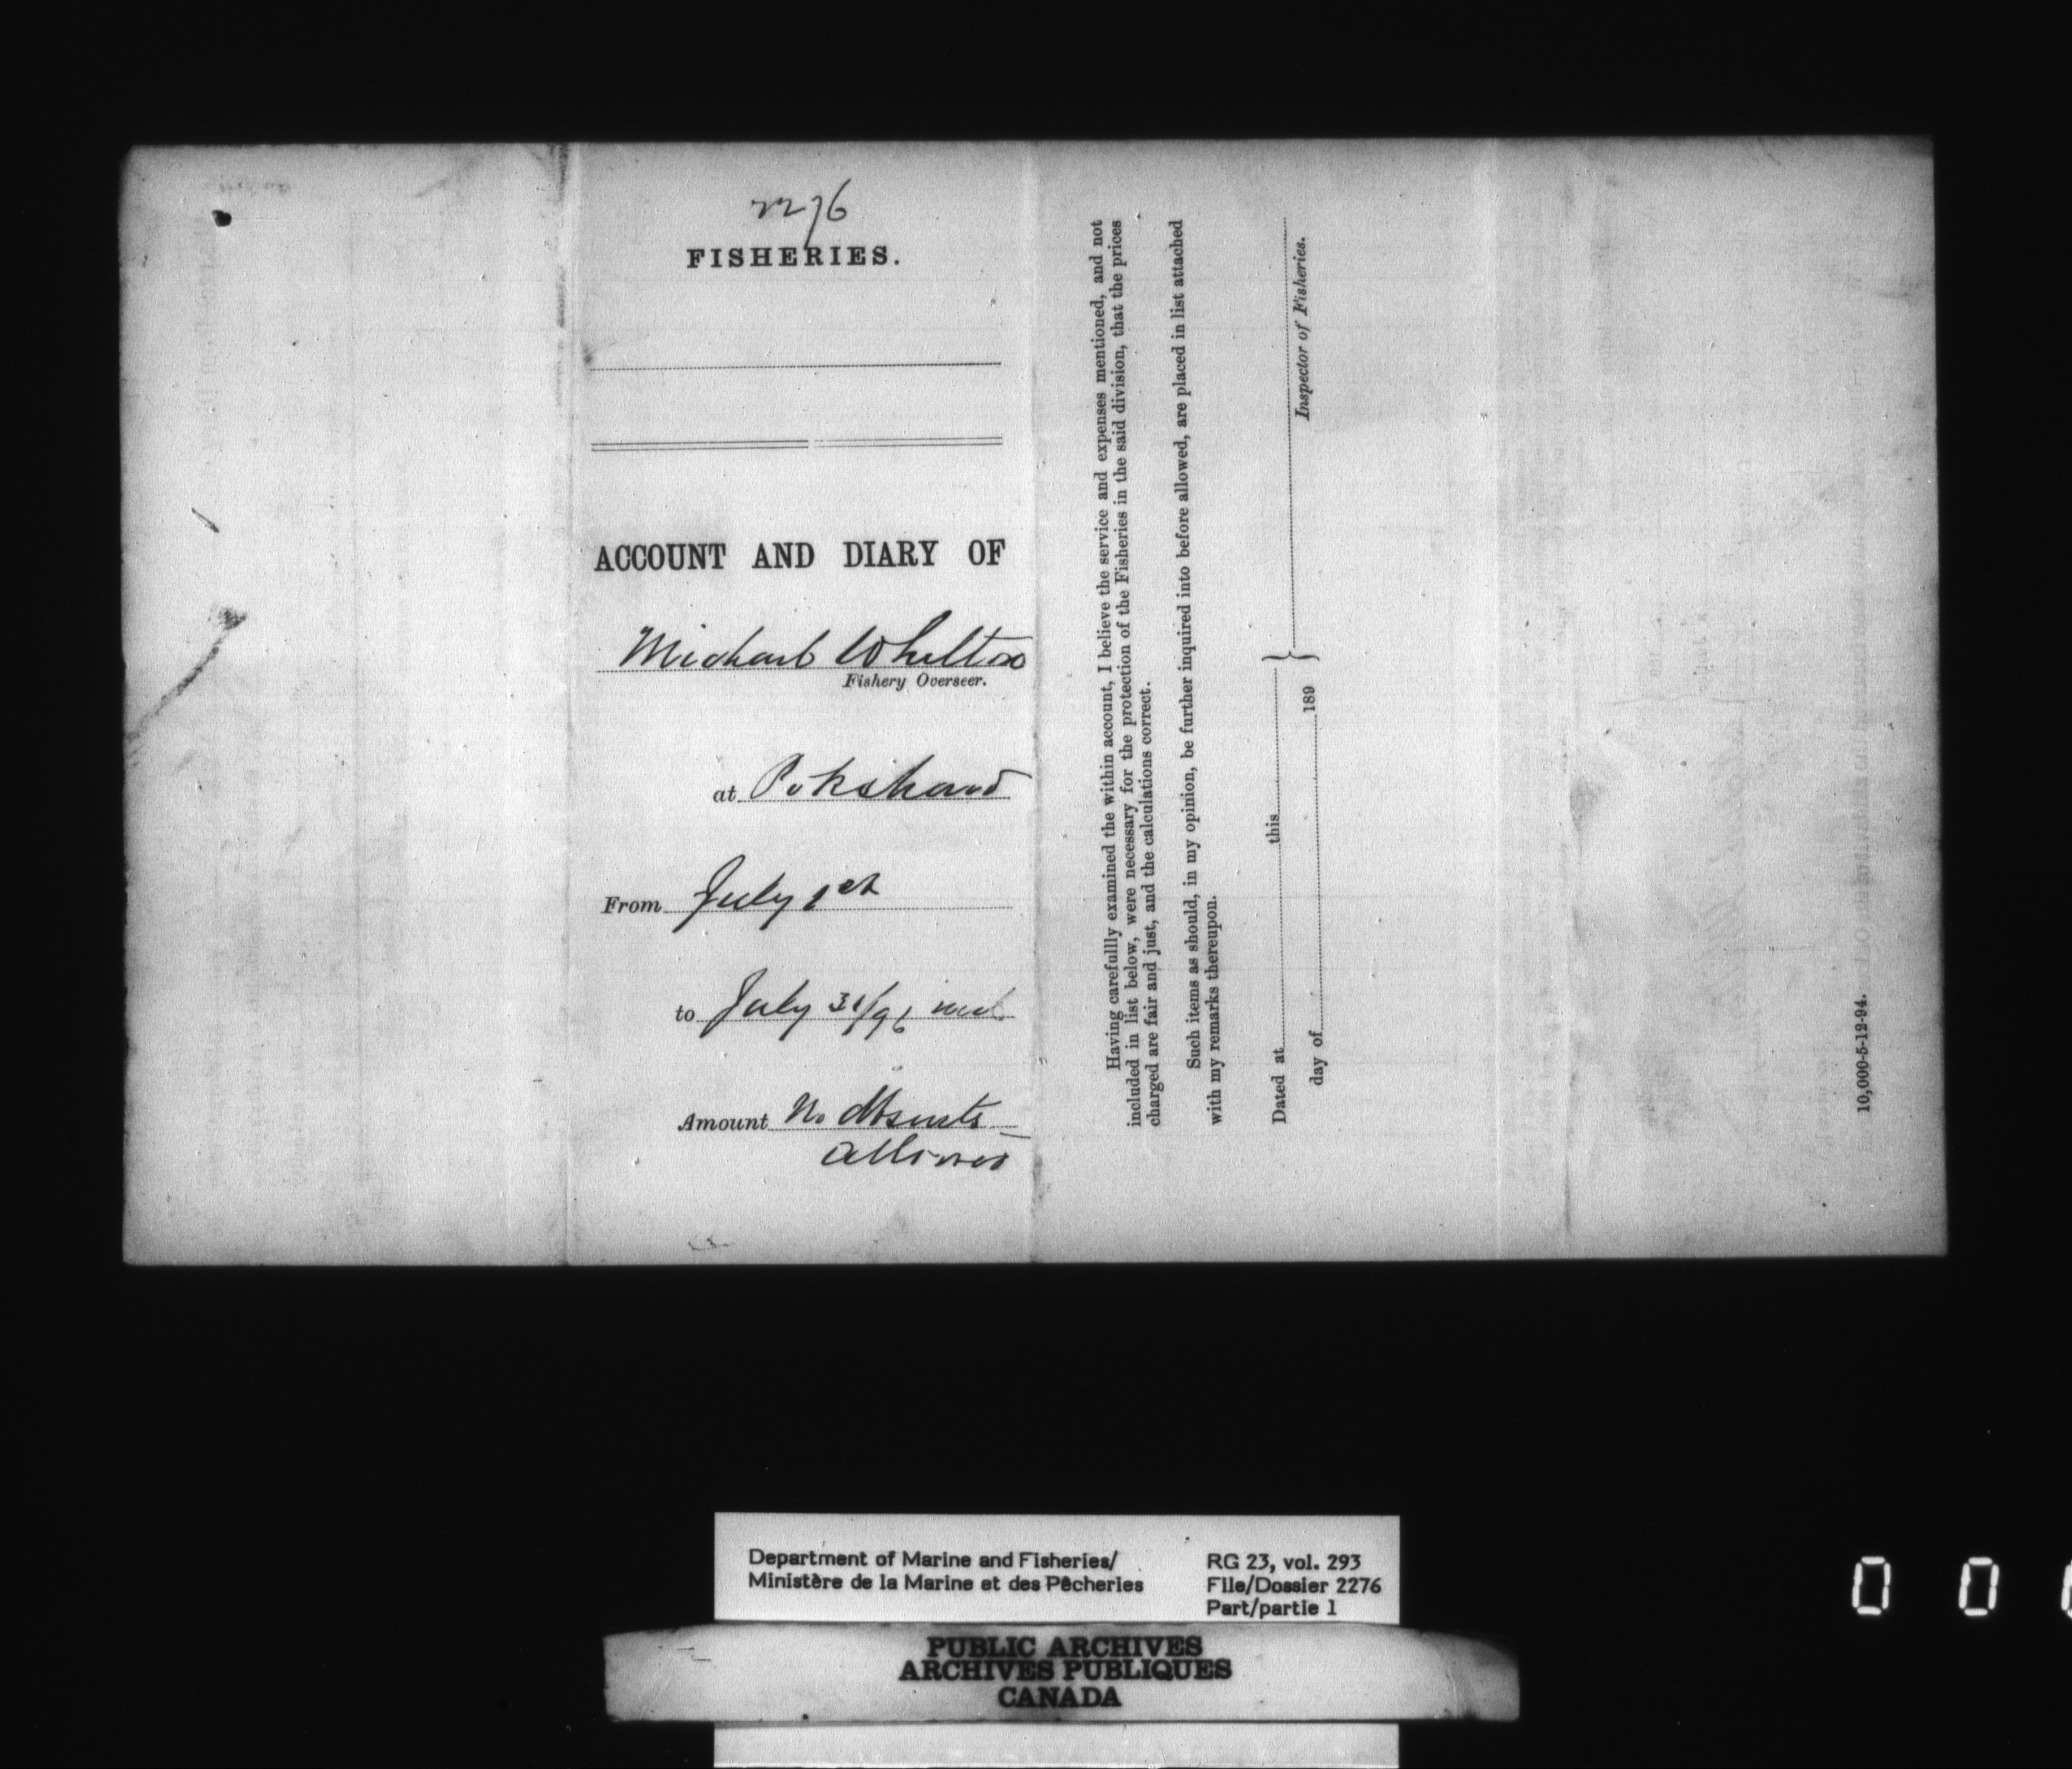 2276
FISHERIES.
ACCOUNT AND DIARY OF
Michael Whelton
Fishery Overseer.
at Pokshaw
From July 1st
to July 31/96 incl
Amount No dbsmts
allowed
Having carefully examined the within account, I believe the service and expenses mentioned, and not
included in list below, were necessary for the protection of the Fisheries in the said division, that the prices
charged are fair and just, and the calculations correct.
Such items as should, in my opinion, be further inquired into before allowed, are placed in list attached
with my remarks thereupon.
Dated at this
day of 189
Inspector of Fisheries.
10,000-5-12-94.
Department of Marine and Fisheries/
Ministère de la Marine et des Pêcheries
RG 23, vol. 293
File/Dossier 2276
Part/partie 1
PUBLIC ARCHIVES
ARCHIVES PUBLIQUES
CANADA
0 0